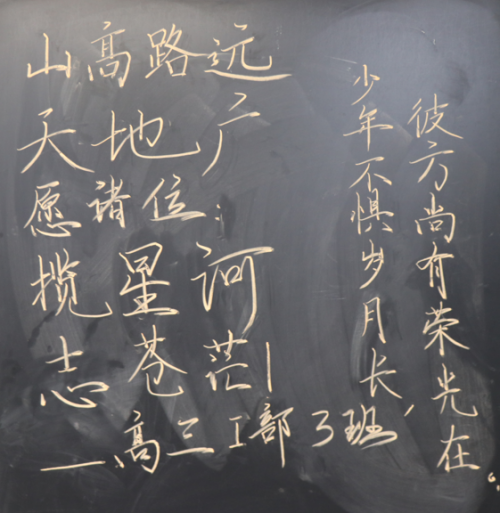 山高路远
天地广
愿诸位:
揽星河
志苍茫!
——高三I部3班
少年不惧岁月长,
彼方尚有荣光在。